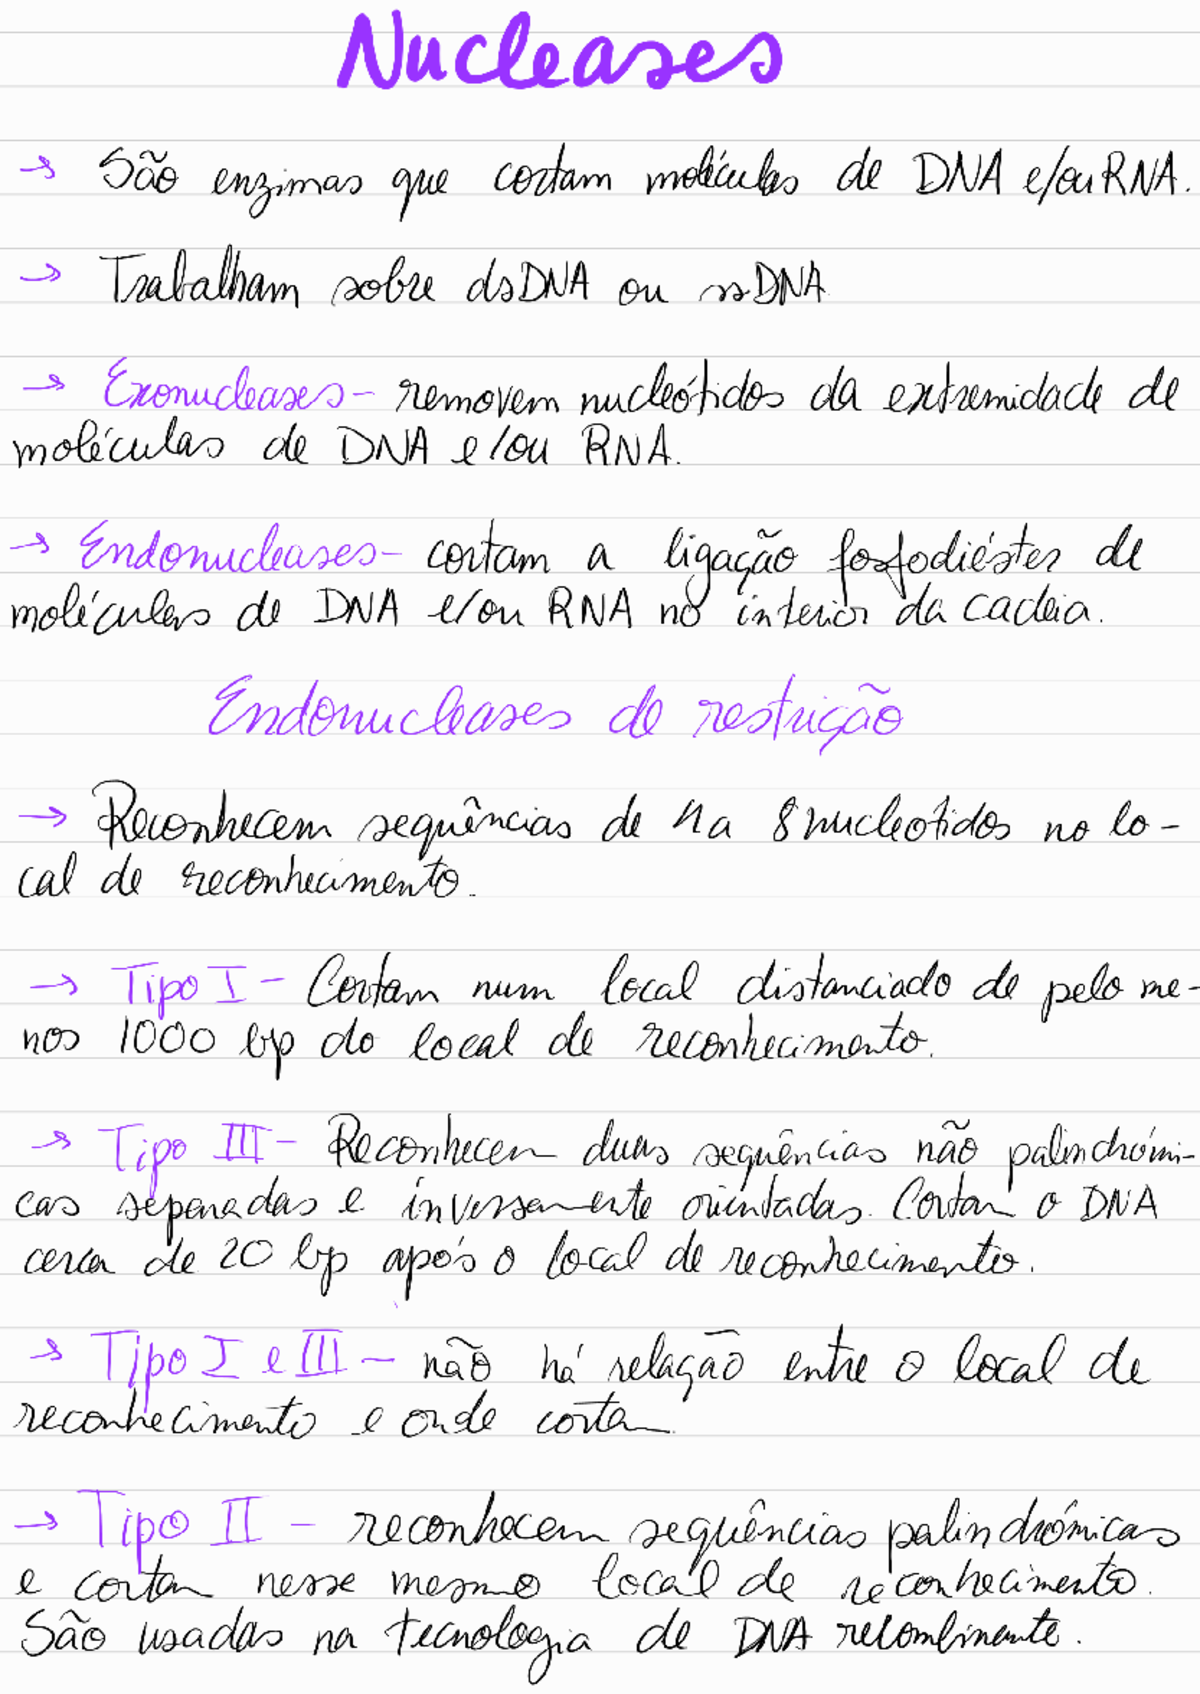 Nucleases
→ São enzimas que cortam moléculas de DNA e/ou RNA.
→ Trabalham sobre dsDNA ou ssDNA
→ Exonucleases - removem nucleótidos da extremidade de
moléculas de DNA e/ou RNA.
→ Endonucleases - cortam a ligação fosfodiéster de
moléculas de DNA e/ou RNA no interior da cadeia.
Endonucleases de restrição
→ Reconhecem sequências de 4 a 8 nucleotidos no lo-
cal de reconhecimento.
→ Tipo I - Cortam num local distanciado de pelo me-
nos 1000 bp do local de reconhecimento.
→ Tipo III - Reconhecem duas sequências não palindrómi-
cas separadas e inversamente orientadas. Cortam o DNA
cerca de 20 bp após o local de reconhecimento.
→ Tipo I e III - não há relação entre o local de
reconhecimento e onde cortam.
→ Tipo II - reconhecem sequências palindrómicas
e cortam nesse mesmo local de reconhecimento.
São usadas na tecnologia de DNA recombinante.